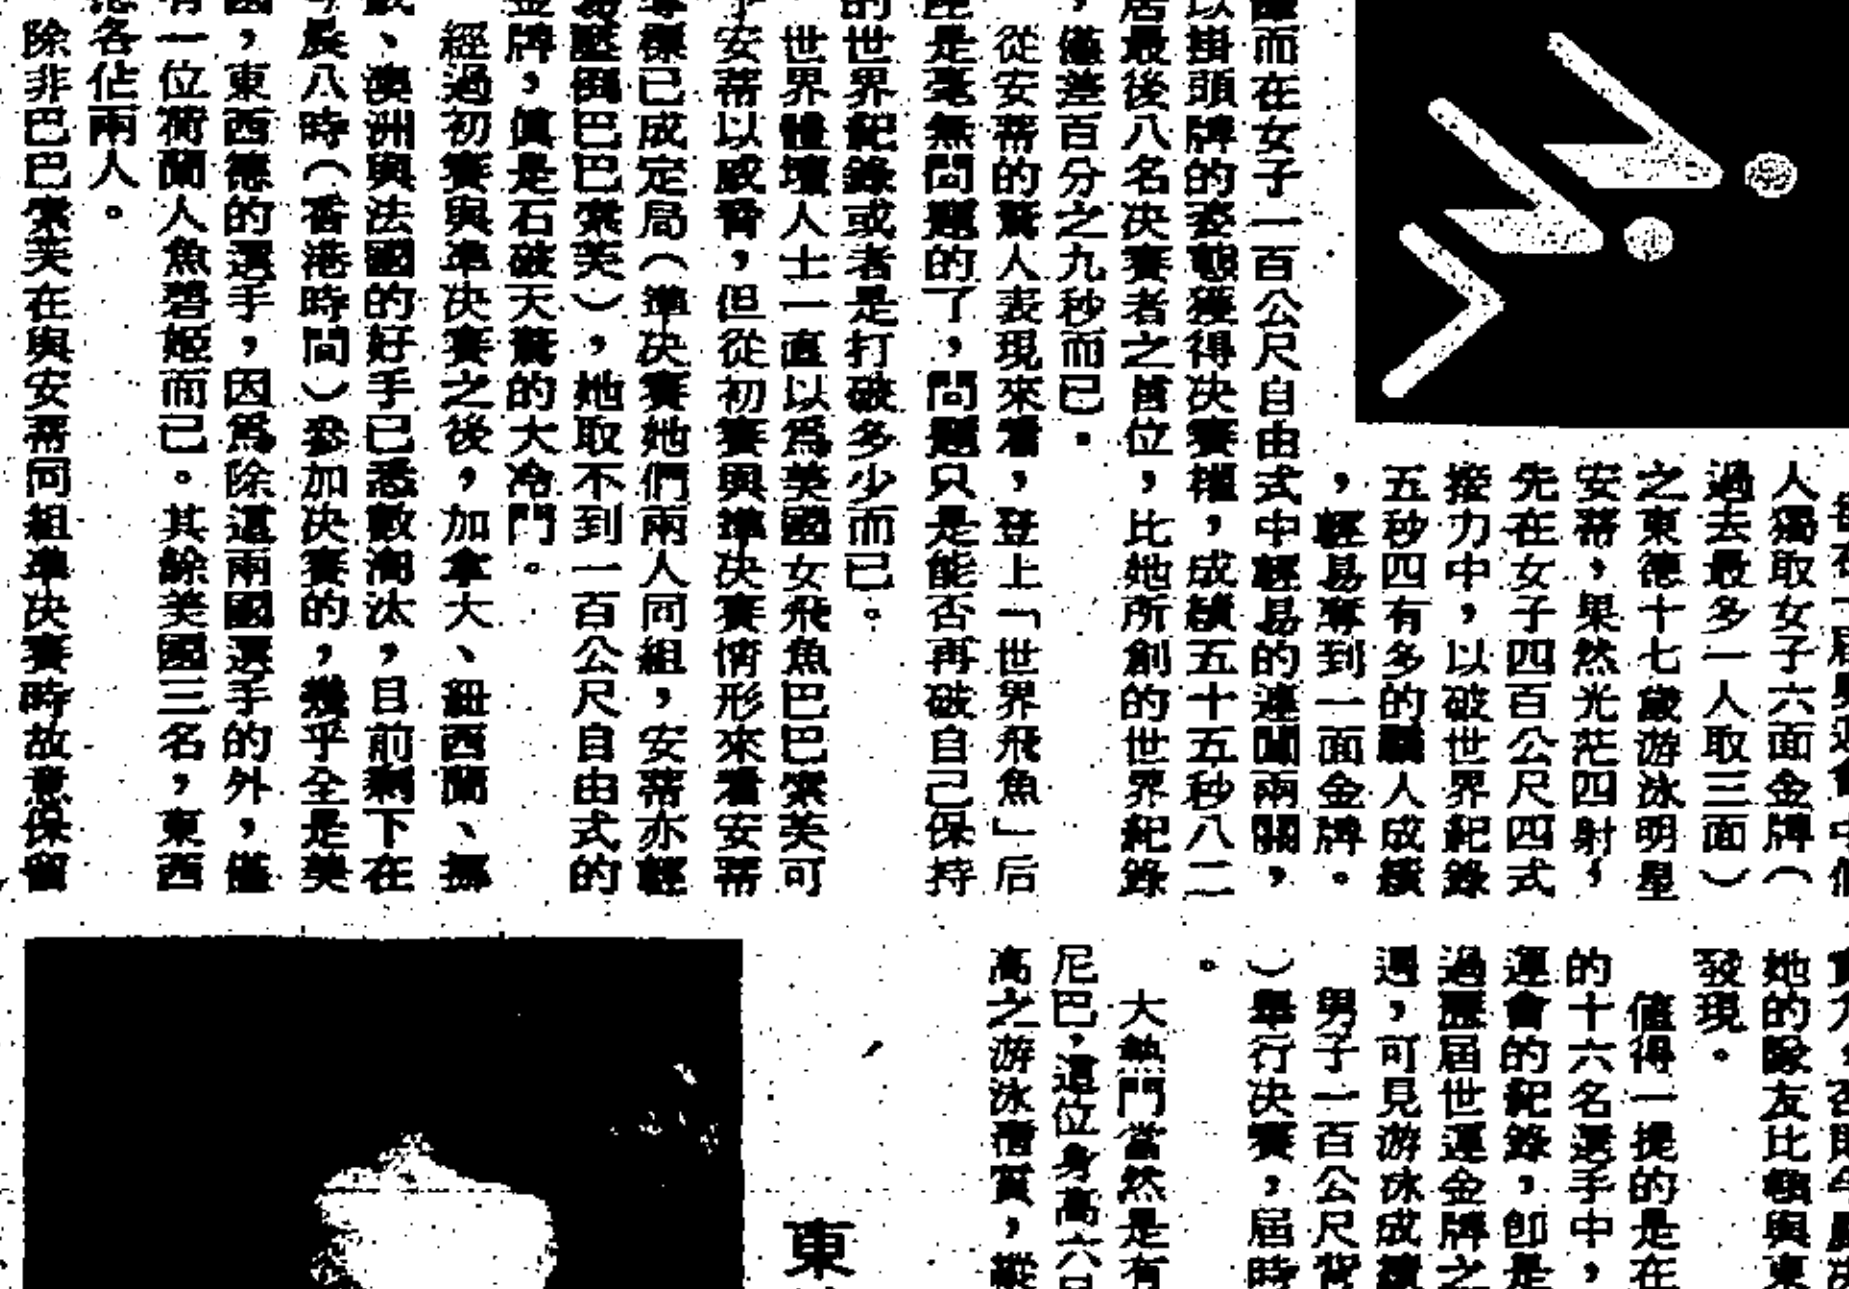 人獨取女子六面金牌（
過去最多一人取三面）
之東德十七歲游泳明星
安蒂，果然光茫四射，
先在女子四百公尺四式
接力中，以破世界紀錄
五秒四有多的驕人成績
，輕易奪到一面金牌。
而在女子一百公尺自由式中輕易的連闖兩關，
以掛頭牌的姿態獲得决賽權，成績五十五秒八二
居最後八名决賽者之首位，比她所創的世界紀錄
，僅差百分之九秒而已。
從安蒂的驚人表現來看，登上「世界飛魚」后
座是毫無問題的了，問題只是能否再破自己保持
的世界紀錄或者是打破多少而已。
世界體壇人士一直以爲美國女飛魚巴巴索芙可
予安蒂以威脅，但從初賽與準决賽情形來看安蒂
奪標已成定局（準决賽她們兩人同組，安蒂亦輕
易壓倒巴巴索芙），她取不到一百公尺自由式的
金牌，眞是石破天驚的大冷門。
經過初賽與準决賽之後，加拿大、紐西蘭、挪
威、澳洲與法國的好手已悉數淘汰，目前剩下在
今晨八時（香港時間）參加决賽的，幾乎全是美
國，東西德的選手，因爲除這兩國選手的外，僅
有一位荷蘭人魚碧姬而已。其餘美國三名，東西
德各佔兩人。
除非巴巴索芙在與安蒂同組準决賽時故意保留
她的隊友比頓與東
發現。
值得一提的是在
的十六名選手中，
運會的紀錄，卽是
過歷屆世運金牌之
遇，可見游泳成績
男子一百公尺背
）舉行决賽，屆時
。
大熱門當然是有
尼巴，這位身高六
高之游泳種質，縱
東